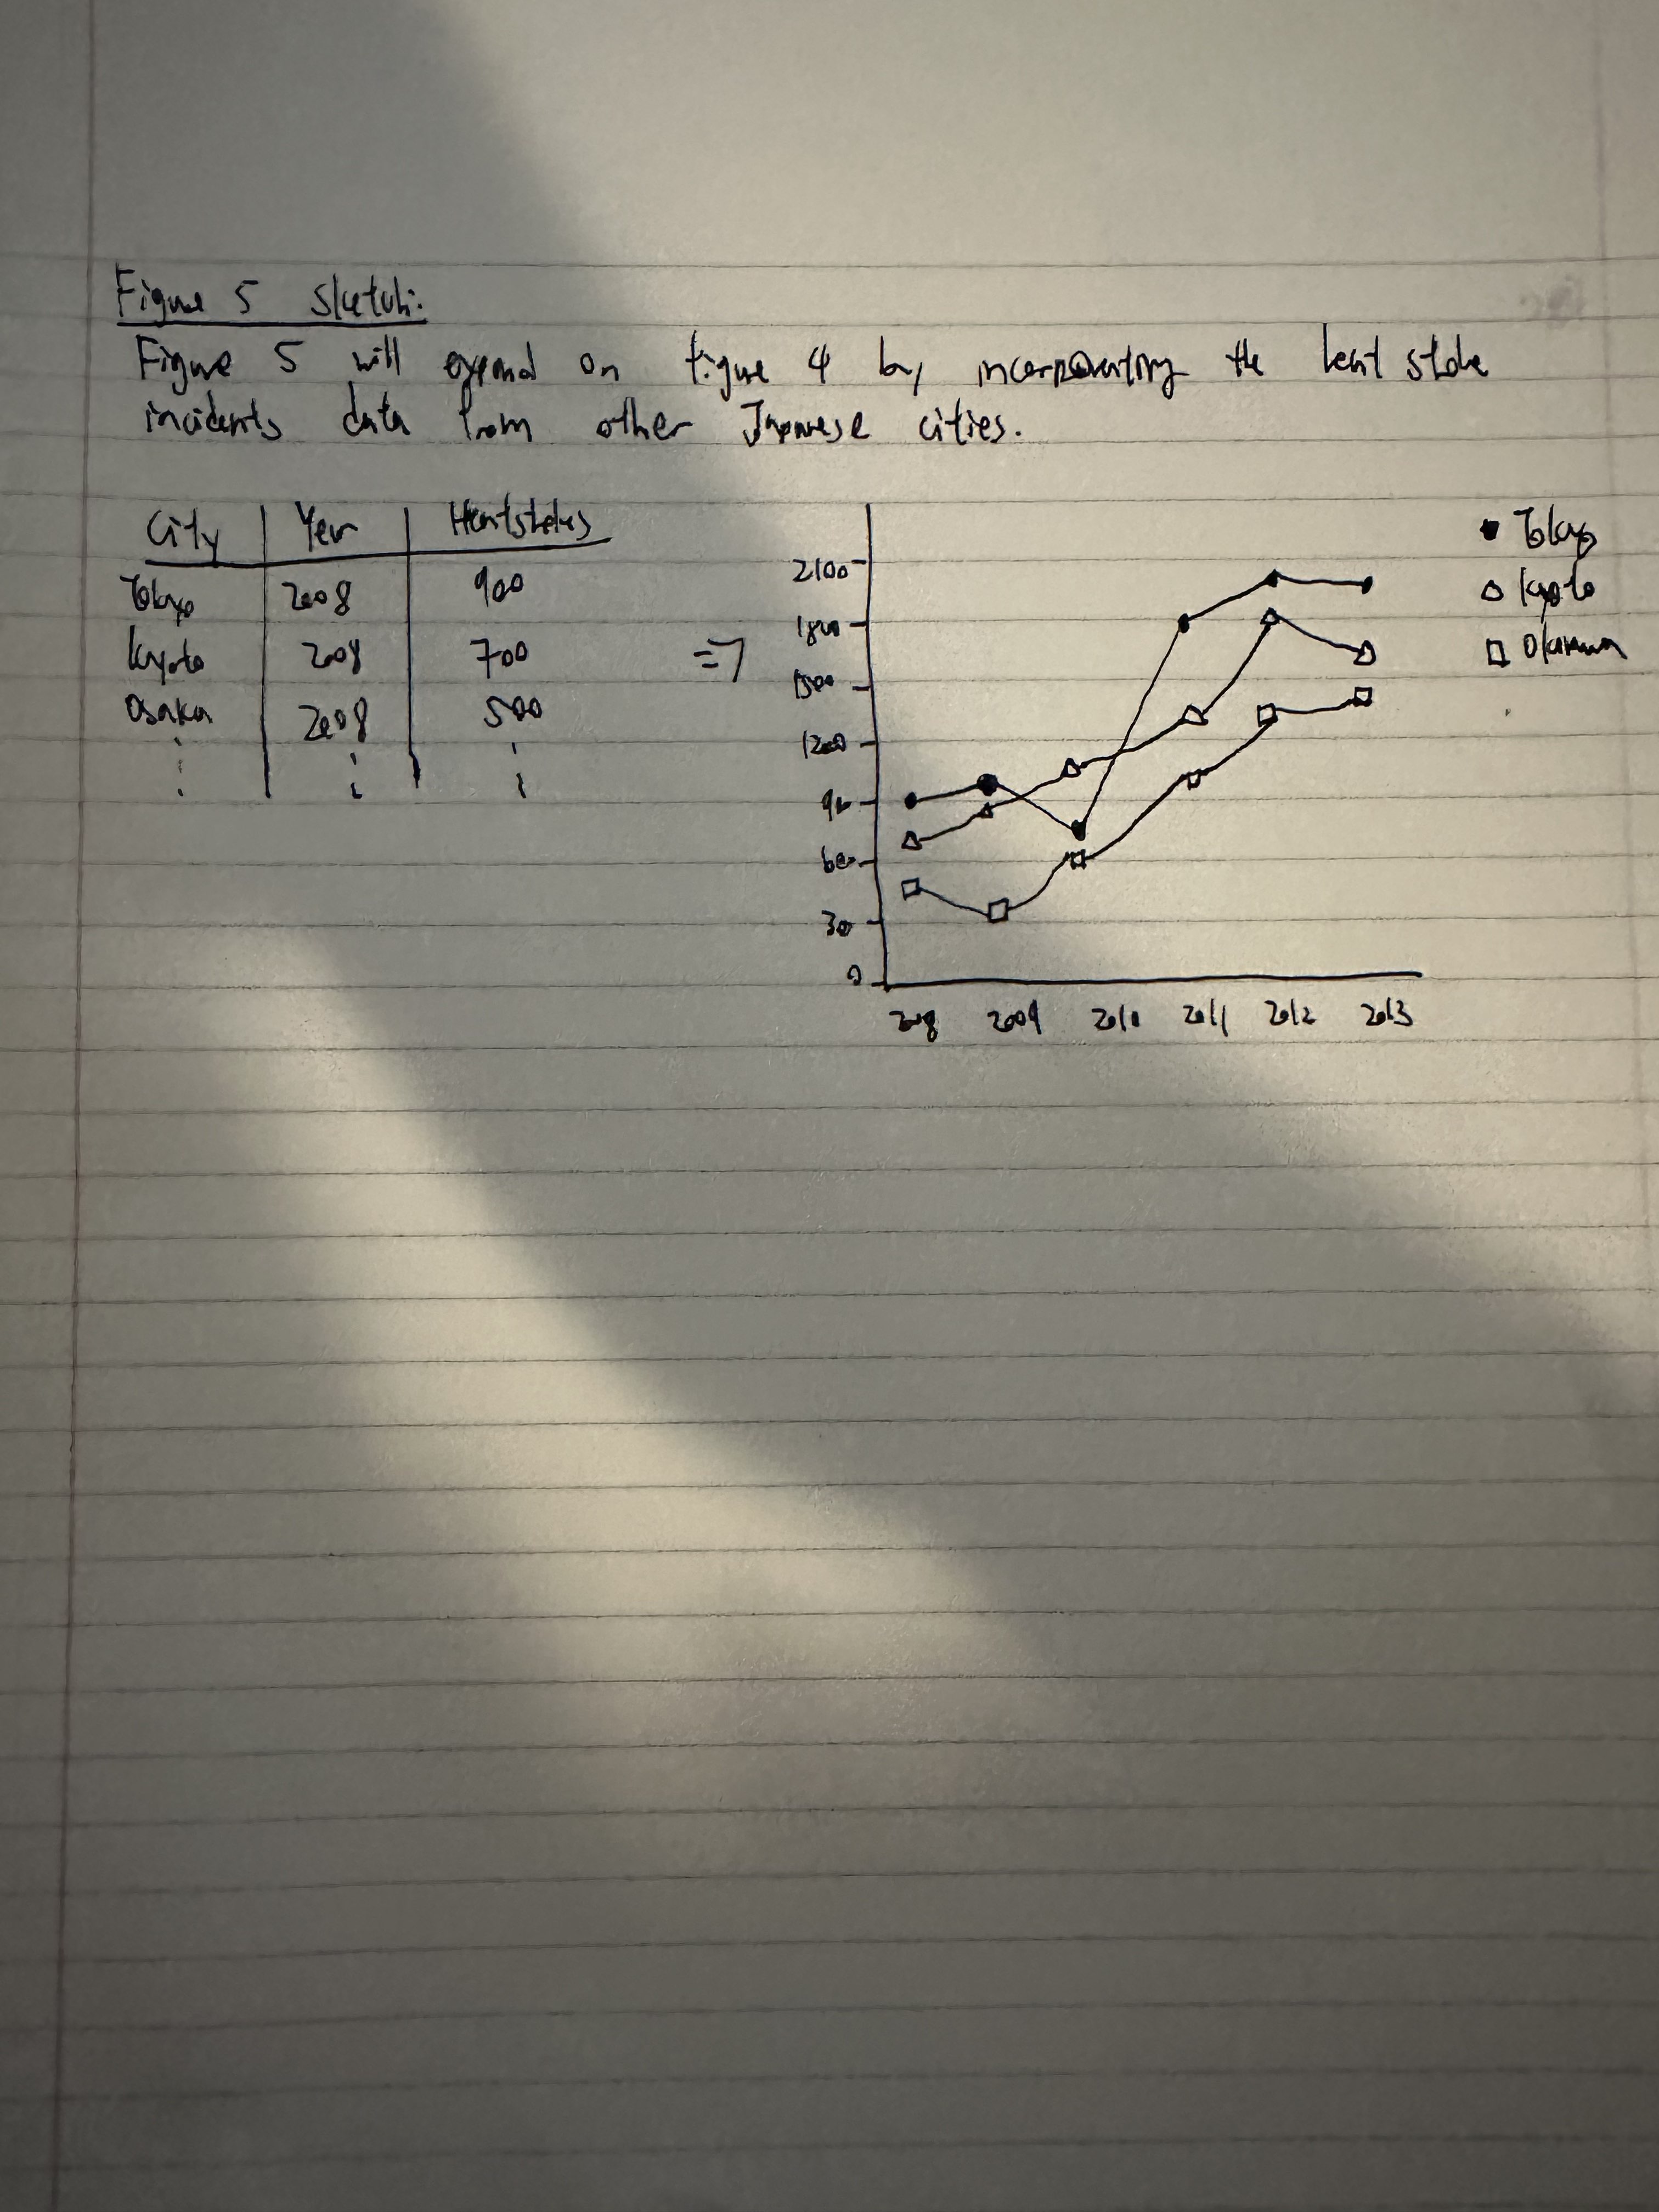 Figure 5 Sketch:
Figure 5 will expand on figure 4 by incorporating the heat stroke
incidents data from other Japanese cities.
City Year Heatstrokes
Tokyo 2008 900
Kyoto 2008 700
Osaka 2008 500
=>
2100
1800
1500
1200
900
600
300
0
2008 2009 2010 2011 2012 2013
Tokyo
Kyoto
Okinawa